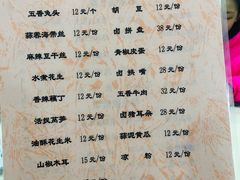 五香兔头 12元/个 胡豆 12元/份
蒜蓉海带丝 12元/份 卤拼盘 38元/份
麻辣豆干丝 12元/份 青椒皮蛋 12元/份
水煮花生 12元/份 卤拱嘴 28元/份
香辣豌丁 12元/份 五香牛肉 32元/份
活捉莴笋 12元/份 卤猪耳朵 28元/份
油酥花生米 12元/份 蒜泥黄瓜 12元/份
山椒木耳 15元/份 凉粉 12元/份